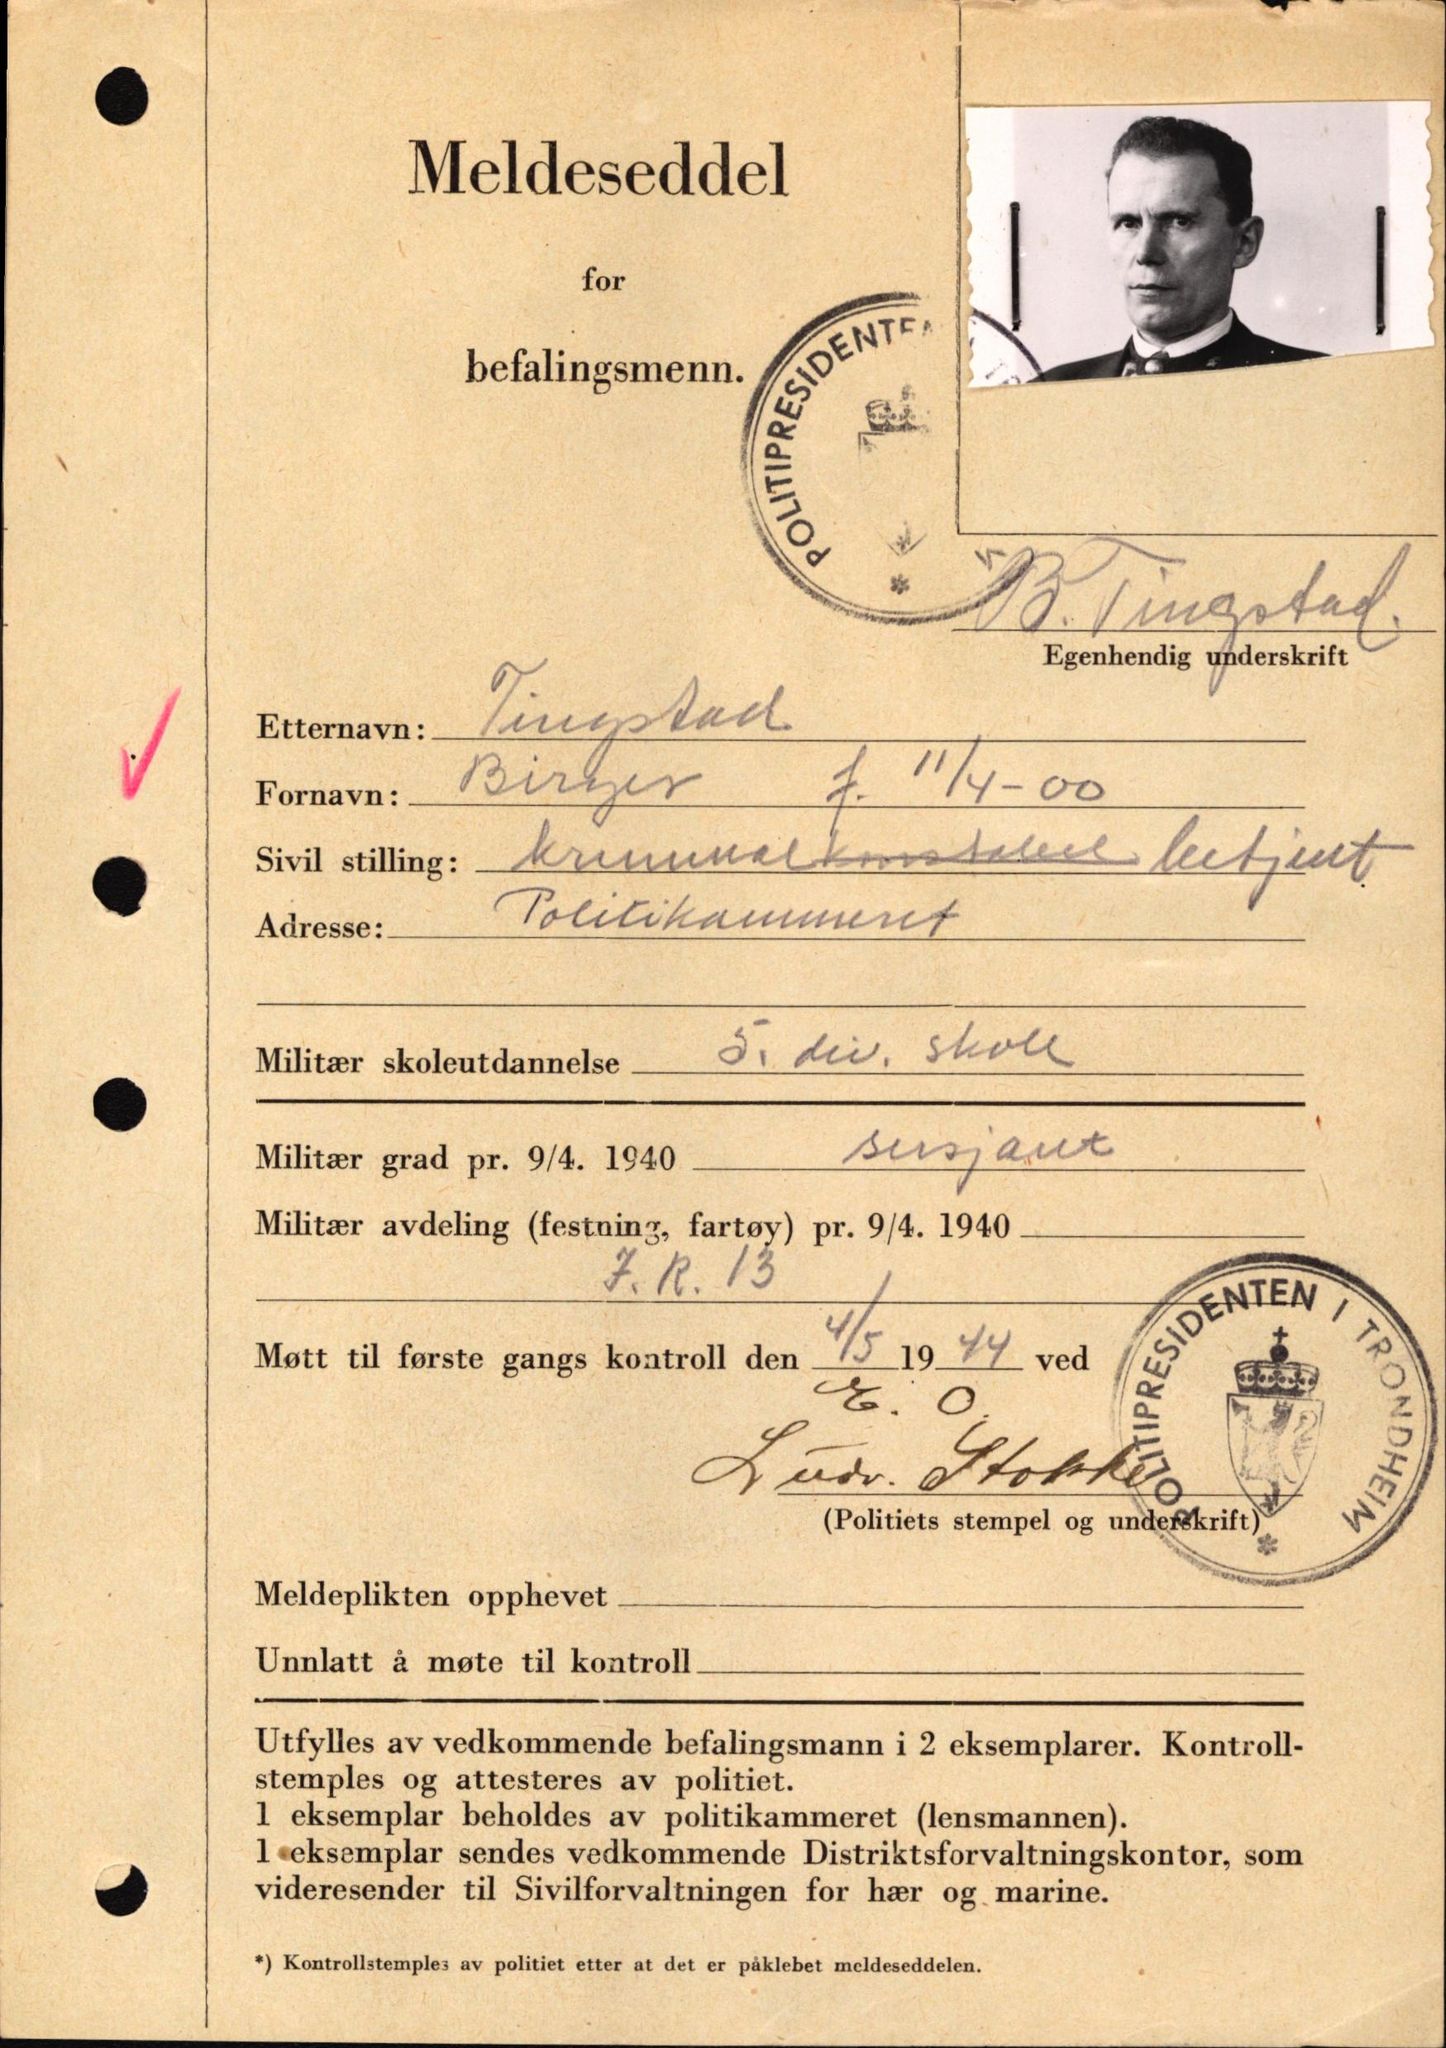 Meldeseddel
for
befalingsmenn.
POLITIPRESIDENTEN
B. Tingstad.
Egenhendig underskrift
Etternavn: Tingstad
Fornavn: Birger f. 11/4-00
Sivil stilling: kriminalkonstabel betjent
Adresse: Politikammeret
Militær skoleutdannelse 5. div. skole
Militær grad pr. 9/4. 1940 sersjant
Militær avdeling (festning, fartøy) pr. 9/4. 1940
I.R. 13
Møtt til første gangs kontroll den 4/5 1944 ved
E. O.
Ludv. Stokke
(Politiets stempel og underskrift)
POLITIPRESIDENTEN I TRONDHEIM *
Meldeplikten opphevet
Unnlatt å møte til kontroll
Utfylles av vedkommende befalingsmann i 2 eksemplarer. Kontroll-
stemples og attesteres av politiet.
1 eksemplar beholdes av politikammeret (lensmannen).
1 eksemplar sendes vedkommende Distriktsforvaltningskontor, som
videresender til Sivilforvaltningen for hær og marine.
*) Kontrollstemples av politiet etter at det er påklebet meldeseddelen.